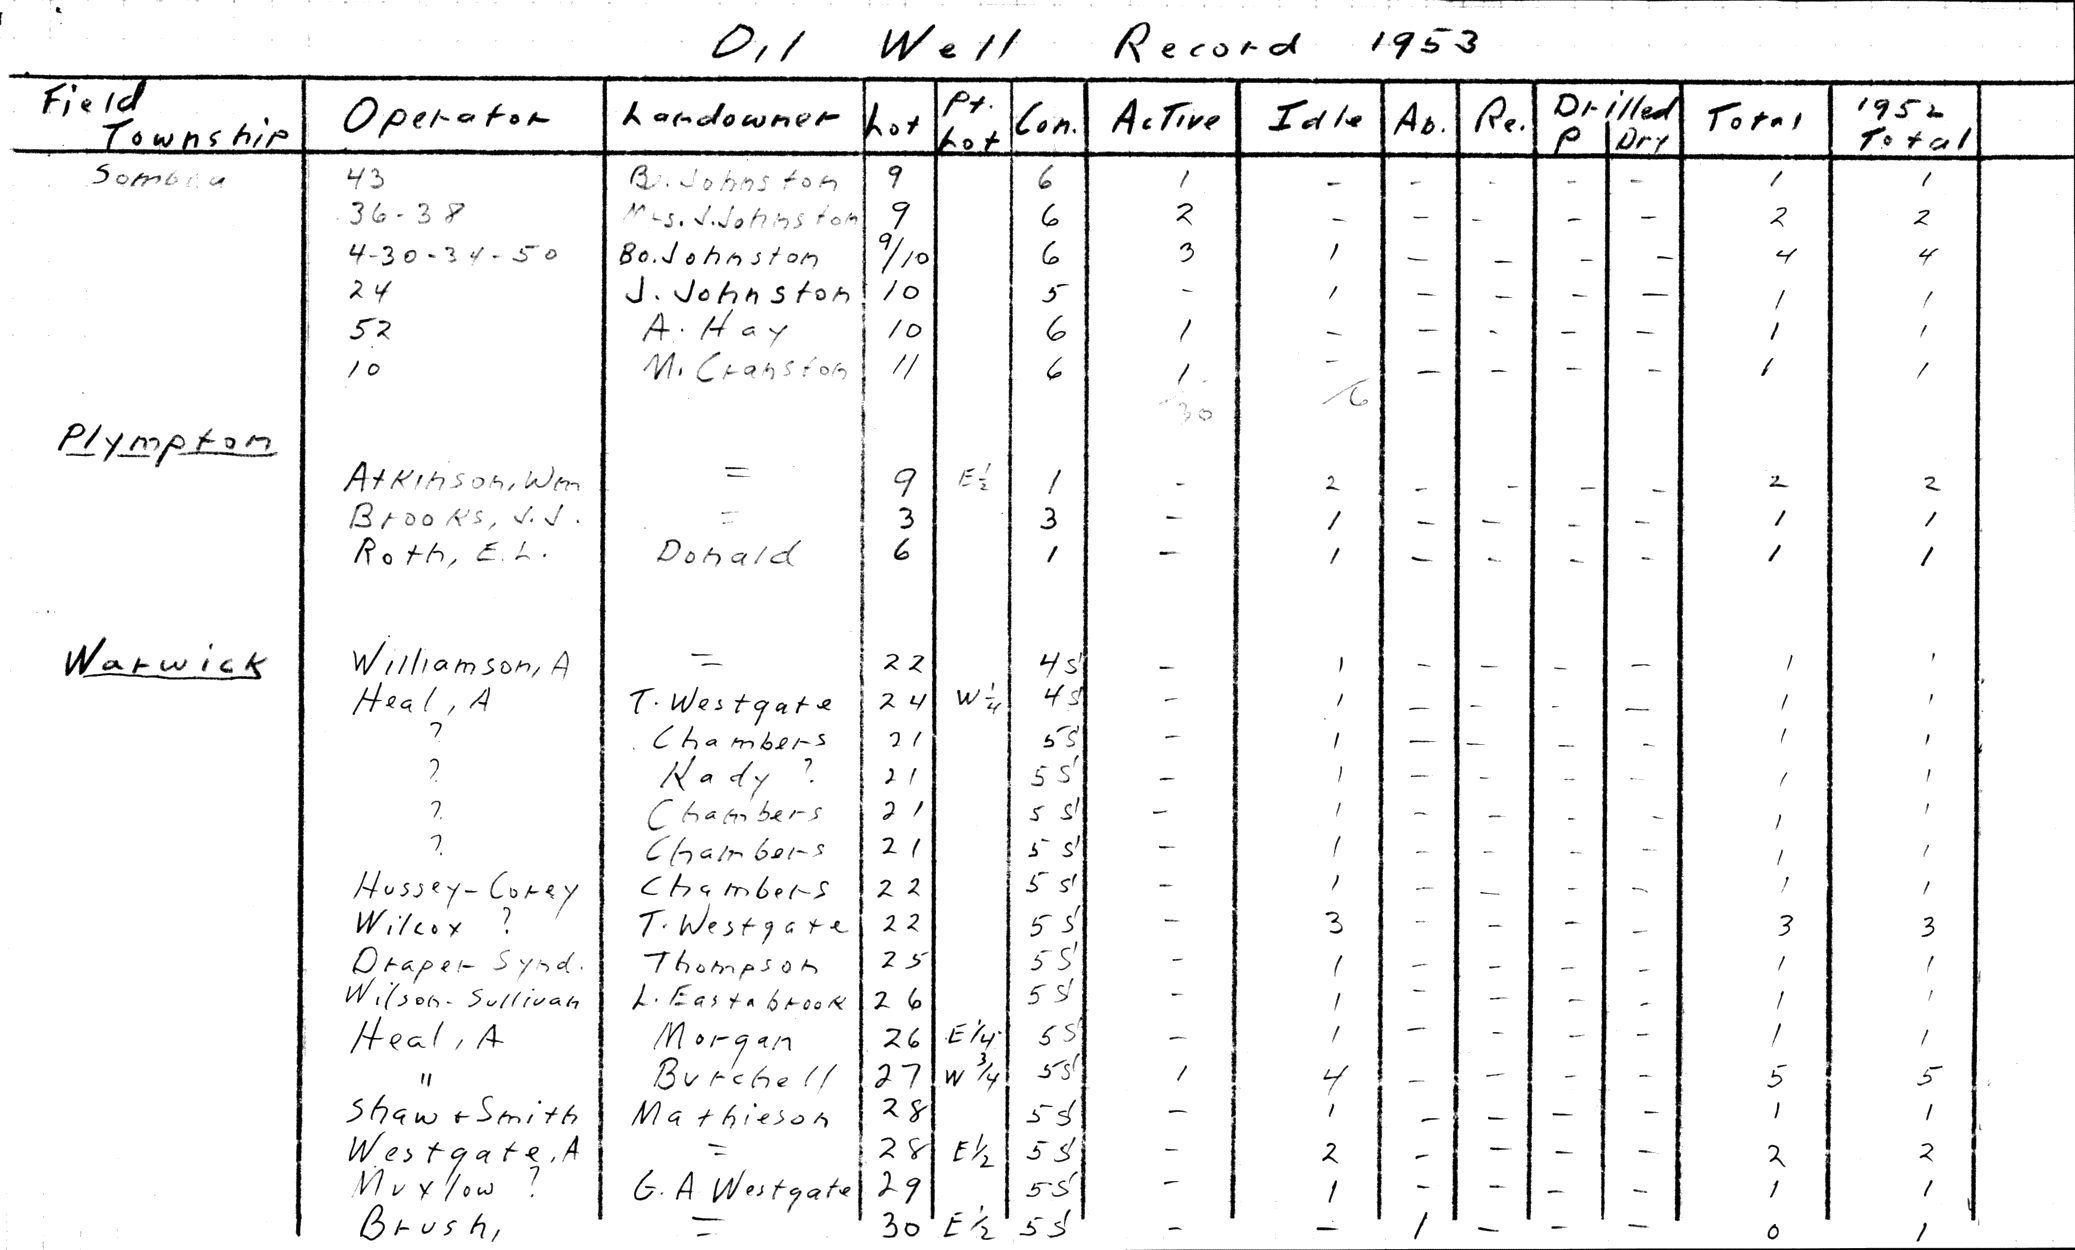 Oil Well Record 1953
Field Township Operator Landowner Lot Pt. Lot Con. Active Idle Ab. Re. Drilled P Dry Total 1952 Total
Sombra 43 B. Johnston 9 6 1 - - - - - 1 1
36-38 Mrs. J. Johnston 9 6 2 - - - - - 2 2
4-30-34-50 Bo. Johnston 9/10 6 3 1 - - - - 4 4
24 J. Johnston 10 5 - 1 - - - - 1 1
52 A. Hay 10 6 1 - - - - - 1 1
10 M. Cranston 11 6 1 - - - - - 1 1
30 6
Plympton
Atkinson, Wm = 9 E½ 1 - 2 - - - - 2 2
Brooks, J.J. = 3 3 - 1 - - - - 1 1
Roth, E.L. Donald 6 1 - 1 - - - - 1 1
Warwick Williamson, A = 22 4S - 1 - - - - 1 1
Heal, A T. Westgate 24 W¼ 4S - 1 - - - - 1 1
? Chambers 21 5S - 1 - - - - 1 1
? Kady ? 21 5S - 1 - - - - 1 1
? Chambers 21 5S - 1 - - - - 1 1
? Chambers 21 5S - 1 - - - - 1 1
Hussey-Corey Chambers 22 5S - 1 - - - - 1 1
Wilcox ? T. Westgate 22 5S - 3 - - - - 3 3
Draper Synd. Thompson 25 5S - 1 - - - - 1 1
Wilson-Sullivan L. Eastabrook 26 5S - 1 - - - - 1 1
Heal, A Morgan 26 E¼ 5S - 1 - - - - 1 1
" Burchell 27 W¾ 5S 1 4 - - - - 5 5
Shaw + Smith Mathieson 28 5S - 1 - - - - 1 1
Westgate, A = 28 E½ 5S - 2 - - - - 2 2
Muxlow ? G. A Westgate 29 5S - 1 - - - - 1 1
Brush, = 30 E½ 5S - - 1 - - - 0 1